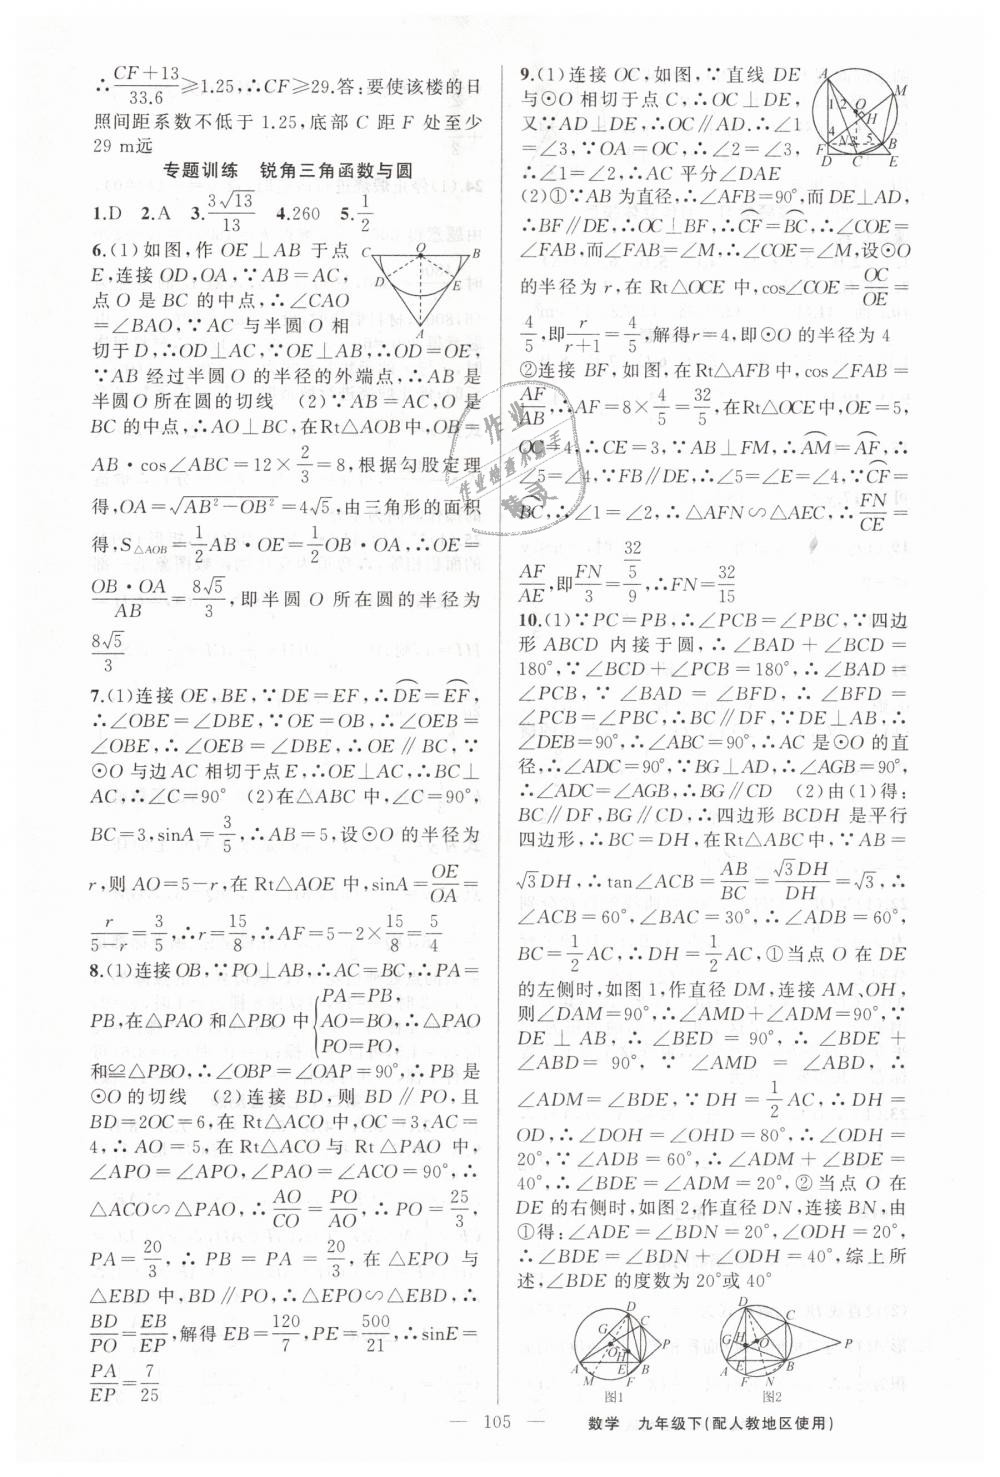 ∴(CF+13)/33.6≥1.25,∴CF≥29.答:要使该楼的日
照间距系数不低于1.25,底部 C 距 F 处至少
29 m远
专题训练 锐角三角函数与圆
1.D 2.A 3.3√13/13 4.260 5.1/2
6.(1)如图,作 OE⊥AB 于点
E,连接 OD,OA,∵AB=AC,
点 O 是 BC 的中点,∴∠CAO
=∠BAO,∵AC 与半圆 O 相
切于 D,∴OD⊥AC,∵OE⊥AB,∴OD=OE,
∵AB 经过半圆 O 的半径的外端点,∴AB 是
半圆 O 所在圆的切线 (2)∵AB=AC,O 是
BC 的中点,∴AO⊥BC,在Rt△AOB中,OB=
AB·cos∠ABC=12×2/3=8,根据勾股定理
得,OA=√(AB²-OB²)=4√5,由三角形的面积
得,S△AOB=1/2AB·OE=1/2OB·OA,∴OE=
OB·OA/AB=8√5/3,即半圆 O 所在圆的半径为
8√5/3
7.(1)连接 OE,BE,∵DE=EF,∴⌒DE=⌒EF,
∴∠OBE=∠DBE,∵OE=OB,∴∠OEB=
∠OBE,∴∠OEB=∠DBE,∴OE∥BC,∵
⊙O 与边 AC 相切于点 E,∴OE⊥AC,∴BC⊥
AC,∴∠C=90° (2)在△ABC 中,∠C=90°,
BC=3,sinA=3/5,∴AB=5,设⊙O 的半径为
r,则 AO=5-r,在 Rt△AOE 中,sinA=OE/OA=
r/(5-r)=3/5,∴r=15/8,∴AF=5-2×15/8=5/4
8.(1)连接OB,∵PO⊥AB,∴AC=BC,∴PA=
PB,在△PAO 和△PBO 中{PA=PB, AO=BO, PO=PO,∴△PAO
和≌△PBO,∴∠OBP=∠OAP=90°,∴PB 是
⊙O 的切线 (2)连接 BD,则 BD∥PO,且
BD=2OC=6,在 Rt△ACO 中,OC=3,AC=
4,∴AO=5,在 Rt△ACO 与 Rt△PAO 中,
∠APO=∠APO,∠PAO=∠ACO=90°,∴
△ACO∽△PAO,∴AO/CO=PO/AO,∴PO=25/3,
PA=20/3,∴PB=PA=20/3,在△EPO 与
△EBD 中,BD∥PO,∴△EPO∽△EBD,∴
BD/PO=EB/EP,解得 EB=120/7,PE=500/21,∴sinE=
PA/EP=7/25
9.(1)连接 OC,如图,∵直线 DE
与⊙O 相切于点 C,∴OC⊥DE,
又∵AD⊥DE,∴OC∥AD.∴∠1
=∠3,∵OA=OC,∴∠2=∠3,
∴∠1=∠2,∴AC 平分∠DAE
(2)①∵AB 为直径,∴∠AFB=90°,而 DE⊥AD,
∴BF∥DE,∴OC⊥BF,∴⌒CF=⌒BC,∴∠COE=
∠FAB,而∠FAB=∠M,∴∠COE=∠M,设⊙O
的半径为 r,在 Rt△OCE 中,cos∠COE=OC/OE=
4/5,即r/(r+1)=4/5,解得r=4,即⊙O 的半径为 4
②连接 BF,如图,在Rt△AFB 中,cos∠FAB=
AF/AB,∴AF=8×4/5=32/5,在Rt△OCE中,OE=5,
OC=4,∴CE=3,∵AB⊥FM,∴⌒AM=⌒AF,∴
∠5=∠4,∵FB∥DE,∴∠5=∠E=∠4,∵⌒CF=
⌒BC,∴∠1=∠2,∴△AFN∽△AEC,∴FN/CE=
AF/AE,即FN/3=(32/5)/9,∴FN=32/15
10.(1)∵PC=PB,∴∠PCB=∠PBC,∵四边
形 ABCD 内接于圆,∴∠BAD+∠BCD=
180°,∵∠BCD+∠PCB=180°,∴∠BAD=
∠PCB,∵∠BAD=∠BFD,∴∠BFD=
∠PCB=∠PBC,∴BC∥DF,∵DE⊥AB,∴
∠DEB=90°,∴∠ABC=90°,∴AC 是⊙O 的直
径,∴∠ADC=90°,∵BG⊥AD,∴∠AGB=90°,
∴∠ADC=∠AGB,∴BG∥CD (2)由(1)得:
BC∥DF,BG∥CD,∴四边形 BCDH 是平行
四边形,∴BC=DH,在Rt△ABC中,∵AB=
√3DH,∴tan∠ACB=AB/BC=√3DH/DH=√3,∴
∠ACB=60°,∠BAC=30°,∴∠ADB=60°,
BC=1/2AC,∴DH=1/2AC,①当点 O 在 DE
的左侧时,如图1,作直径 DM,连接 AM、OH,
则∠DAM=90°,∴∠AMD+∠ADM=90°,∵
DE⊥AB,∴∠BED=90°,∴∠BDE+
∠ABD=90°,∵∠AMD=∠ABD,∴
∠ADM=∠BDE,∵DH=1/2AC,∴DH=
OD,∴∠DOH=∠OHD=80°,∴∠ODH=
20°,∵∠ADB=60°,∴∠ADM+∠BDE=
40°,∴∠BDE=∠ADM=20°,②当点 O 在
DE 的右侧时,如图2,作直径DN,连接BN,由
①得:∠ADE=∠BDN=20°,∠ODH=20°,
∴∠BDE=∠BDN+∠ODH=40°,综上所
述,∠BDE 的度数为20°或40°
图1 图2
— 105 —
数学 九年级下(配人教地区使用)
作业
作业检查小助手
精灵